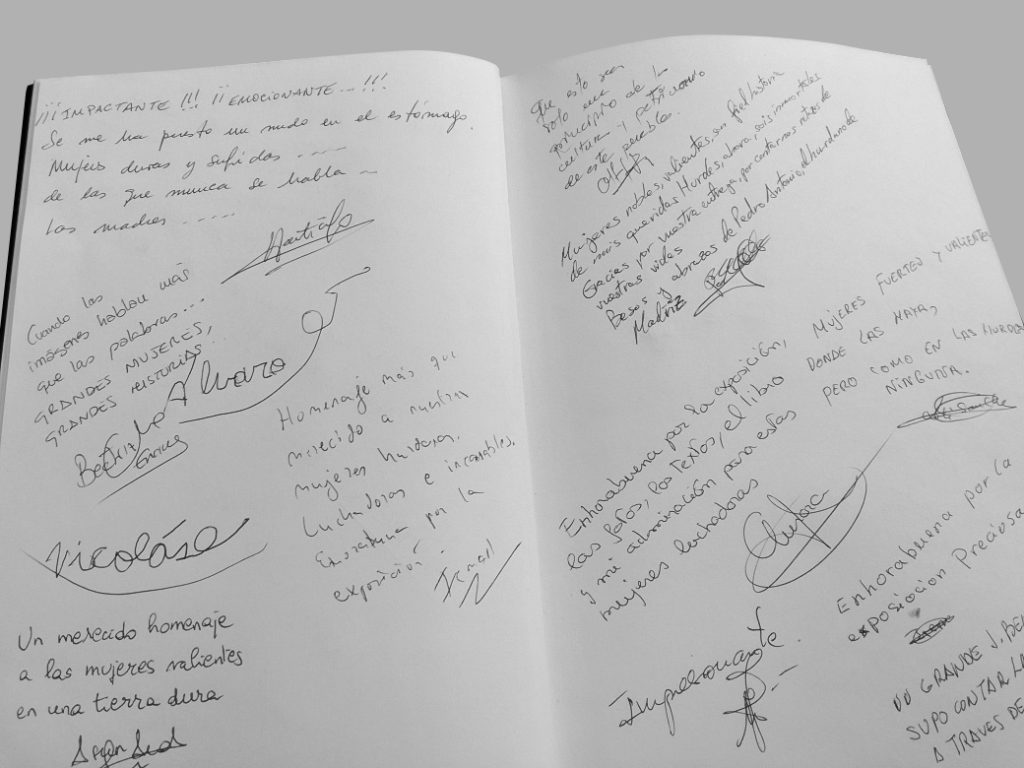 ¡¡¡IMPACTANTE!!! ¡¡EMOCIONANTE...!!!
Se me ha puesto un nudo en el estómago.
Mujeres duras y sufridas ....
de las que nunca se habla ..
Las madres .....
Cuando las
imágenes hablan más
que las palabras...
GRANDES MUJERES,
GRANDES HISTORIAS...
Alvaro
Nicolás
Un merecido homenaje
a las mujeres valientes
en una tierra dura
Homenaje más que
merecido a nuestra
mujeres hurdanas.
Luchadoras e incansables.
por la
exposición.
Que esto sea
solo un
principio de la
cultura y patrimonio
de este pueblo.
Mujeres nobles, valientes, son fiel historia
de mis queridas Hurdes, ahora sois inmortales
Gracias por vuestra entrega, por contarnos retazos de
vuestras vidas
Besos y abrazos de Pedro Antonio, el hurdano de
Madriz
MUJERES FUERTES Y VALIENTES
DONDE LAS HAYA,
PERO COMO EN LAS HURDES
NINGUNA.
Enhorabuena por la exposición,
las fotos, los textos, el libro
y mi admiración para estas
mujeres luchadoras
Impresionante.
Enhorabuena por la
exposicion Preciosa
UN GRANDE J. BE
SUPO CONTAR LA
A TRAVES DE